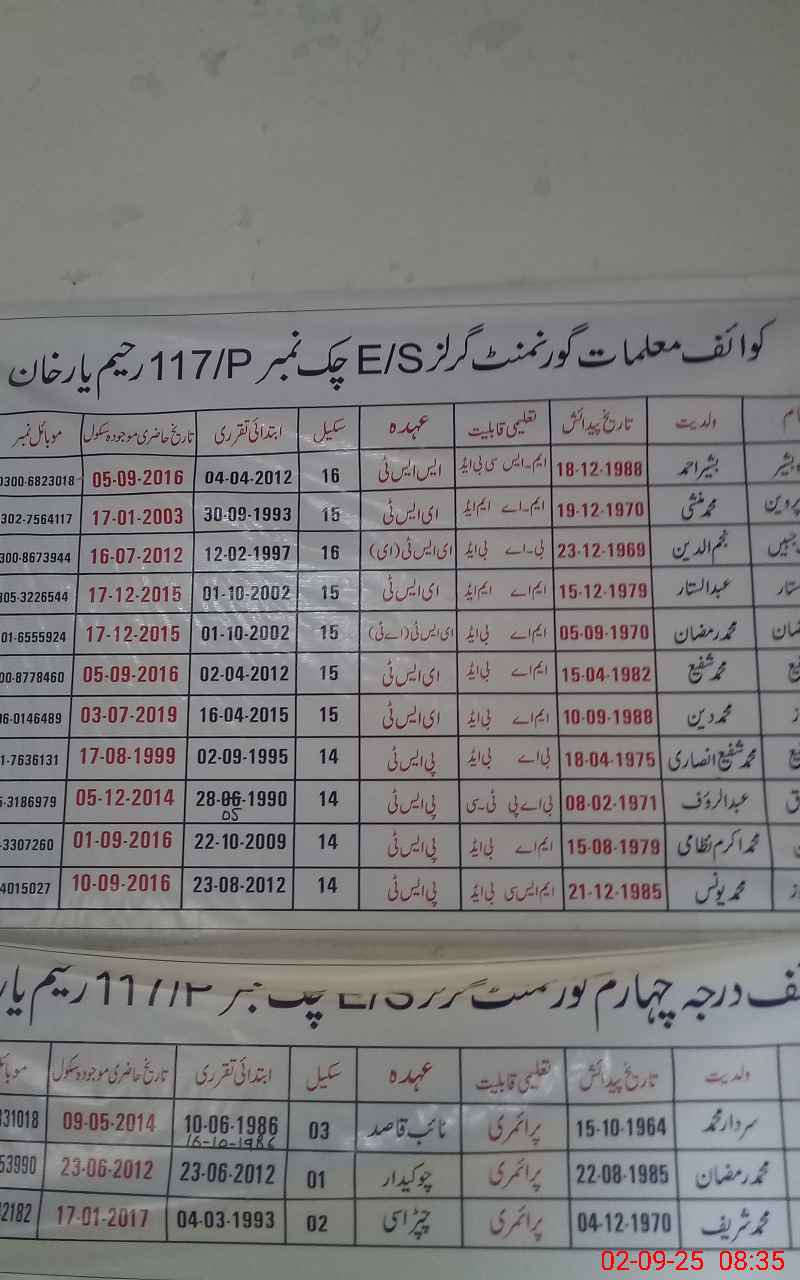 کوائف معلمات گورنمنٹ گرلز E/S چک نمبر 117/P رحیم یار خان
ولدیت تاریخ پیدائش تعلیمی قابلیت عہدہ سکیل ابتدائی تقرری تاریخ حاضری موجودہ سکول موبائل نمبر
بشیر احمد 18-12-1988 ایم۔ایس سی بی ایڈ ایس ایس ٹی 16 04-04-2012 05-09-2016 0300-6823018
پروین محمد منشی 19-12-1970 ایم۔اے ایم ایڈ ای ایس ٹی 15 30-09-1993 17-01-2003 302-7564117
نجم الدین 23-12-1969 بی۔اے بی ایڈ ای ایس ٹی (ای) 16 12-02-1997 16-07-2012 300-8673944
عبدالستار 15-12-1979 ایم اے ایم ایڈ ای ایس ٹی 15 01-10-2002 17-12-2015 305-3226544
محمد رمضان 05-09-1970 ایم اے بی ایڈ ای ایس ٹی (اے ٹی) 15 01-10-2002 17-12-2015 01-6555924
محمد شفیع 15-04-1982 ایم اے بی ایڈ ای ایس ٹی 15 02-04-2012 05-09-2016 00-8778460
محمد دین 10-09-1988 ایم اے بی ایڈ ای ایس ٹی 15 16-04-2015 03-07-2019 06-0146489
محمد شفیع انصاری 18-04-1975 بی اے بی ایڈ پی ایس ٹی 14 02-09-1995 17-08-1999 1-7636131
عبدالرؤف 08-02-1971 بی اے پی ٹی۔سی پی ایس ٹی 14 28-06-1990 05-12-2014 5-3186979
05
محمد اکرم نظامی 15-08-1979 ایم اے بی ایڈ پی ایس ٹی 14 22-10-2009 01-09-2016 -3307260
محمد یونس 21-12-1985 ایم ایس سی بی ایڈ پی ایس ٹی 14 23-08-2012 10-09-2016 4015027
درجہ چہارم گورنمنٹ گرلز E/S چک نمبر 117/P رحیم یار
ولدیت تاریخ پیدائش تعلیمی قابلیت عہدہ سکیل ابتدائی تقرری تاریخ حاضری موجودہ سکول
سردار محمد 15-10-1964 پرائمری نائب قاصد 03 10-06-1986 09-05-2014 331018
16-10-1986
محمد رمضان 22-08-1985 پرائمری چوکیدار 01 23-06-2012 23-06-2012 53990
محمد شریف 04-12-1970 پرائمری چپڑاسی 02 04-03-1993 17-01-2017 2182
02-09-25 08:35